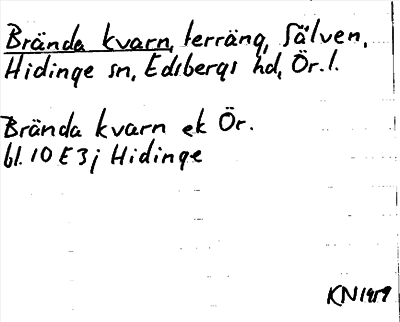 Brända kvarn, terräng, Sälven,
Hidinge sn, Edsbergs hd, Ör. l.
Brända kvarn ek Ör.
bl. 10 E 3 j Hidinge
KN 1959